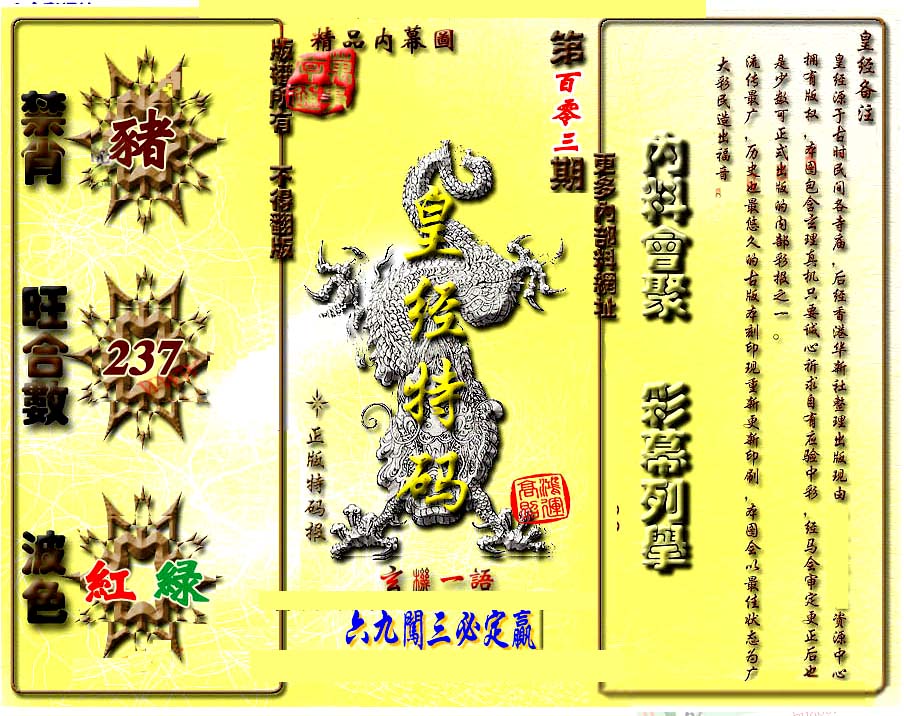 精品内幕圖
第百零三期
版權所有 不得翻版
更多內部料網址
禁肖
豬
旺合數
237
波色
紅 綠
皇经特码
正版特码报
鴻運高照
玄機一語
六九闖三必定贏
內料會聚 彩幕列舉
皇经备注
皇经源于古时民间各寺庙，后经香港华新社整理出版现由 资源中心
拥有版权，本图包含玄理真机只要诚心祈求自有应验中彩，经马会审定更正后也
是少数可正式出版的内部彩报之一。
流传最广，历史也最悠久的古版本刻印现重新更新印刷，本图会以最佳状态为广
大彩民造出福音